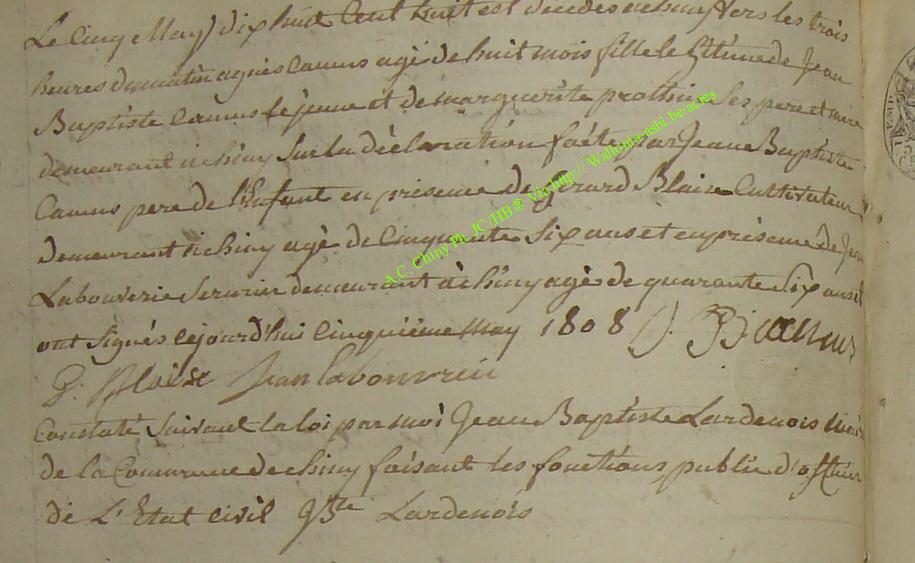 Le Cinq May dix huit Cent huit est décédée à chiny vers les trois
heures du matin agnès Camus agé de huit mois fille légitime de Jean
Baptiste Camus le jeune et de marguerite prothin ses pere et mere
demeurant à chiny Sur la déclaration faéte par Jean Baptiste
Camus pere de l'Enfant en présence de Gérard Blaise Cultivateur
demeurant à chiny agé de Cinquante Six ans et en présence de Jean
Labouverie demeurant à chiny agé de quarante Six ans et
ont signés cejourd'hui cinquiéme May 1808 J. B Camus
G. Blaise Jean labouverie
Constaté Suivant la loi par moi Jean Baptiste Lardenois
de la Commune de chiny faisant les fonctions public d'officier
de L'Etat civil Bte Lardenois
A.C. Chiny Ph. JC/HB® Via http://Wallonie.asbl.be/actes